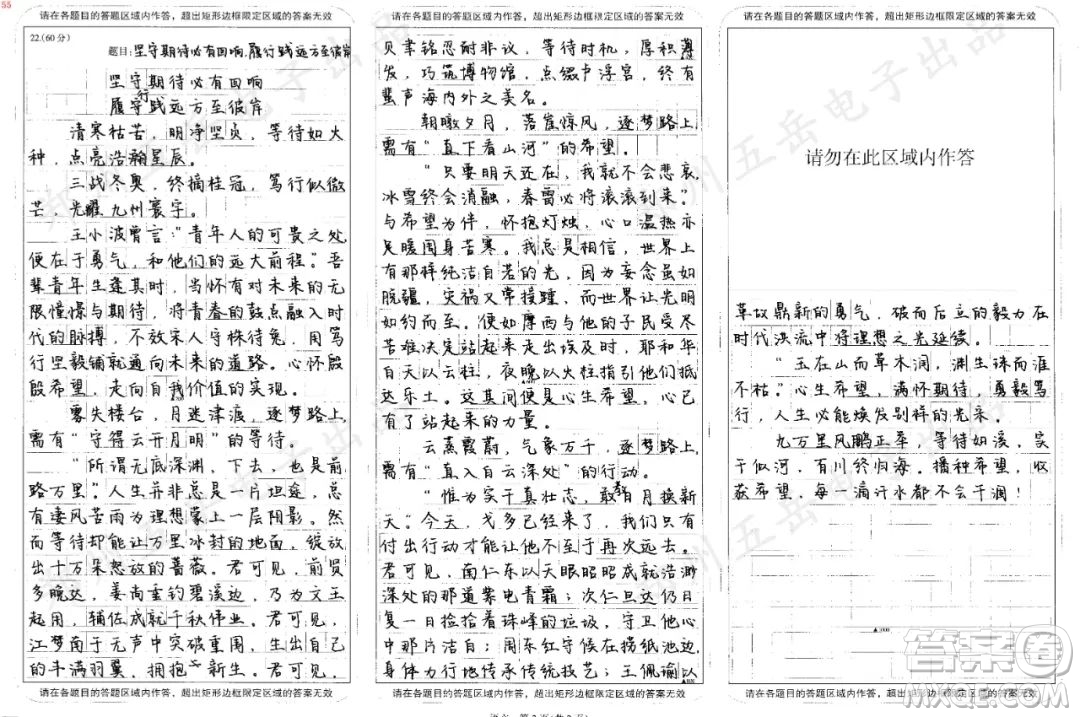 55
请在各题目的答题区域内作答，超出矩形边框限定区域的答案无效
22.(60分)
题目：坚守期待必有回响，履行践远方至彼岸
坚守期待必有回响
履行践远方至彼岸
清寒枯苦，明净坚贞，等待如火
种，点亮浩瀚星辰。
三战冬奥，终摘桂冠，笃行似微
芒，光耀九州寰宇。
王小波曾言："青年人的可贵之处
便在于勇气，和他们的远大前程。"吾
辈青年生逢其时，当怀有对未来的无
限憧憬与期待，将青春的鼓点融入时
代的脉搏，不效宋人守株待兔，用笃
行坚毅铺就通向未来的道路。心怀殷
殷希望，走向自我价值的实现。
雾失楼台，月迷津渡，逐梦路上，
需有"守得云开月明"的等待。
"所谓无底深渊，下去，也是前
路万里。"人生并非总是一片坦途，总
有凄风苦雨为理想蒙上一层阴影。然
而等待却能让万里冰封的地面，绽放
出十万朵怒放的蔷薇。君可见，前贤
多晚达，姜尚重钓碧溪边，乃为文王
起用，辅佐成就千秋伟业。君可见，
江梦南于无声中突破重围，生出自己
的丰满羽翼，拥抱新生。君可见，
请在各题目的答题区域内作答，超出矩形边框限定区域的答案无效
请在各题目的答题区域内作答，超出矩形边框限定区域的答案无效
贝聿铭忍耐非议，等待时机，厚积薄
发，巧筑博物馆，点缀卢浮宫，终有
蜚声海内外之美名。
朝暾夕月，落崖惊风，逐梦路上，
需有"直下看山河"的希望。
"只要明天还在，我就不会悲哀，
冰雪终会消融，春雷必将滚滚到来。"
与希望为伴，怀抱灯烛，心口温热亦
足暖周身苦寒。我总是相信，世界上
有那样纯洁自若的光，因为妄念虽如
脓疆，灾祸又常接踵，而世界让光明
如约而至。便如摩西与他的子民受尽
苦难决定站起来走出埃及时，耶和华
白天以云柱，夜晚以火柱指引他们抵
达乐土。这其间便是心生希望，心已
有了站起来的力量。
云蒸霞蔚，气象万千，逐梦路上，
需有"直入白云深处"的行动。
"惟为实干真壮志，敢教日月换新
天。"今天，戈多已经来了，我们只有
付出行动才能让他不至于再次远去。
君可见，南仁东以天眼昭昭成就浩渺
深处的那道紫电青霜；次仁旦达仍日
复一日捡拾着珠峰的垃圾，守卫他心
中那片洁白；周东红守候在捞纸池边，
身体力行地传承传统技艺；王佩瑜以
请在各题目的答题区域内作答，超出矩形边框限定区域的答案无效
请在各题目的答题区域内作答，超出矩形边框限定区域的答案无效
请勿在此区域内作答
革故鼎新的勇气，破而后立的毅力在
时代洪流中将理想之光延续。
"玉在山而草木润，渊生珠而涯
不枯。"心生希望，满怀期待，勇毅笃
行，人生必能焕发别样的光采。
九万里风鹏正举，等待如溪，实
干似河，百川终归海。播种希望，收
获希望，每一滴汗水都不会干涸！
请在各题目的答题区域内作答，超出矩形边框限定区域的答案无效
答案圈